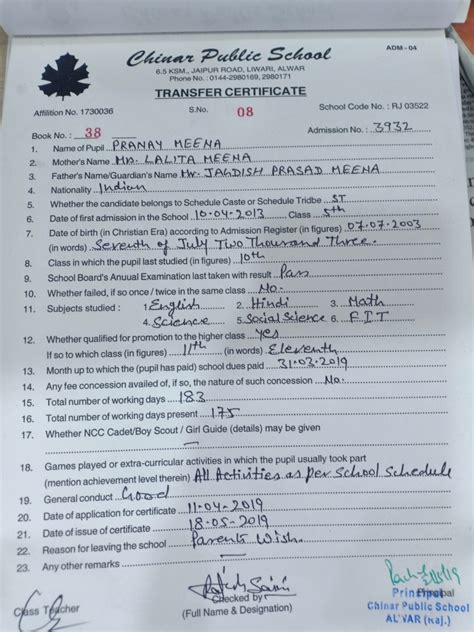 ADM - 04
Chinar Public School
6.5 KSM., JAIPUR ROAD, LIWARI, ALWAR
Phone No. : 0144-2980169, 2980171
TRANSFER CERTIFICATE
Affilition No. 1730036 S.No. 08 School Code No. : RJ 03522
Book No. : 38 Admission No. : 3932
1. Name of Pupil PRANAY MEENA
2. Mother's Name Mrs. LALITA MEENA
3. Father's Name/Guardian's Name Mr. JAGDISH PRASAD MEENA
4. Nationality Indian
5. Whether the candidate belongs to Schedule Caste or Schedule Tridbe ST
6. Date of first admission in the School 10-04-2013 Class 5th
7. Date of birth (in Christian Era) according to Admission Register (in figures) 07.07.2003
(in words) Seventh of July Two Thousand Three.
8. Class in which the pupil last studied (in figures) 10th
9. School Board's Anuual Examination last taken with result Pass
10. Whether failed, if so once / twice in the same class No.
11. Subjects studied : 1. English 2. Hindi 3. Math
4. Science 5. Social Science 6. F.I.T
12. Whether qualified for promotion to the higher class Yes
If so to which class (in figures) 11th (in words) Eleventh
13. Month up to which the (pupil has paid) school dues paid 31-03-2019
14. Any fee concession availed of, if so, the nature of such concession No.
15. Total number of working days 183
16. Total number of working days present 175
17. Whether NCC Cadet/Boy Scout / Girl Guide (details) may be given
18. Games played or extra-curricular activities in which the pupil usually took part
(mention achievement level therein) All Activities as per School Schedule
19. General conduct Good
20. Date of application for certificate 11-04-2019
21. Date of issue of certificate 18-05-2019
22. Reason for leaving the school Parents Wish.
23. Any other remarks
Class Teacher
Checked by
(Full Name & Designation)
Principal
Chinar Public School
ALWAR (Raj.)